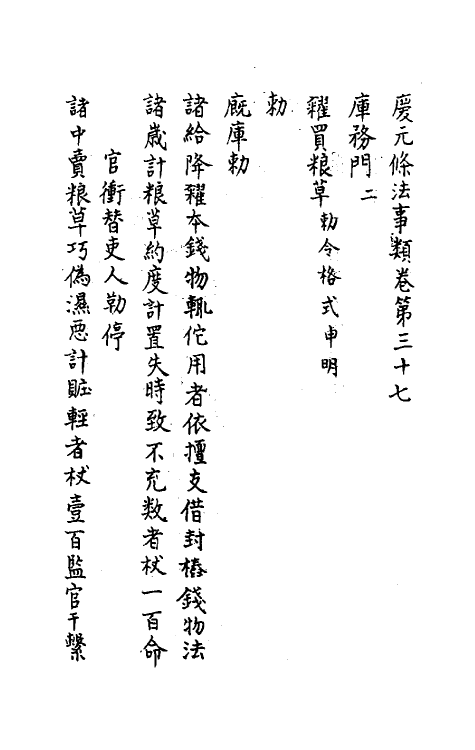 慶元條法事類卷第三十七
庫務門二
糴買粮草勅令格式申明
勅
廐庫勅
諸給降糴本錢物輒佗用者依擅支借封樁錢物法
諸歲計粮草約度計置失時致不充数者杖一百命
官衝替吏人勒停
諸中賣粮草巧偽濕惡計贓輕者杖壹百監官干繫